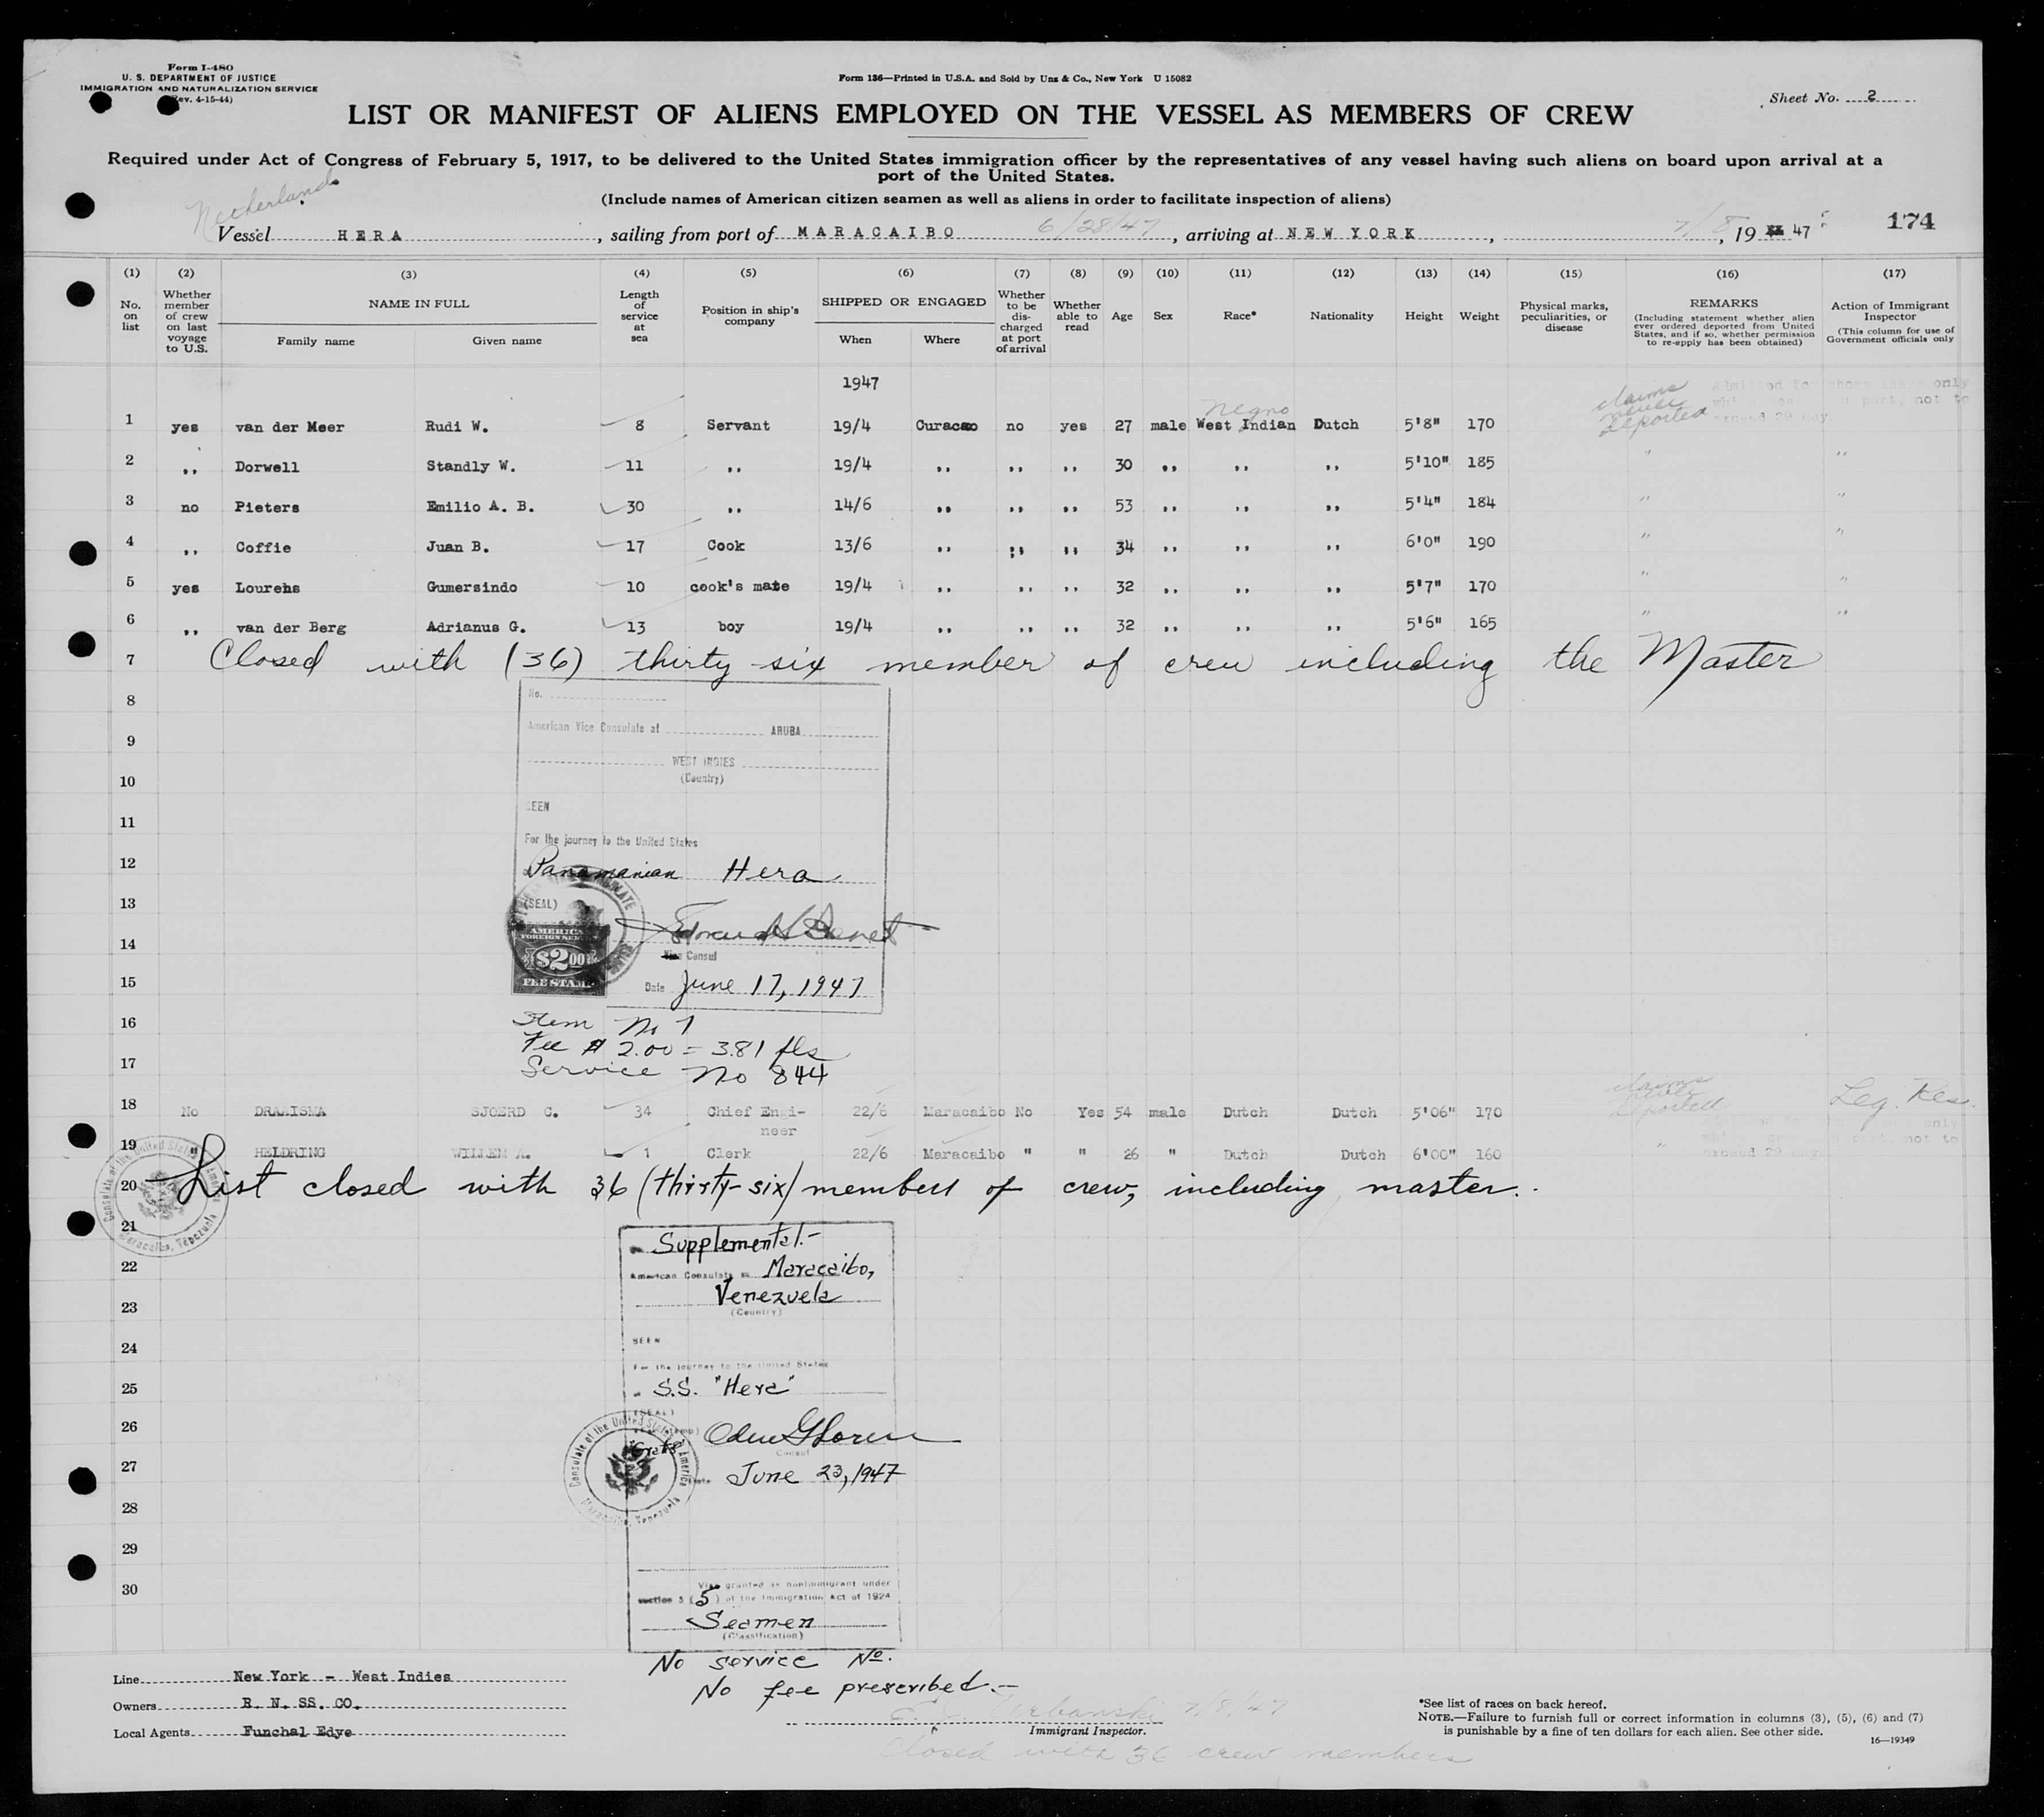 Form I-480
U. S. DEPARTMENT OF JUSTICE
IMMIGRATION AND NATURALIZATION SERVICE
(Rev. 4-15-44)
Form 136—Printed in U.S.A. and Sold by Unz & Co., New York U 15082
Sheet No. 2
LIST OR MANIFEST OF ALIENS EMPLOYED ON THE VESSEL AS MEMBERS OF CREW
Required under Act of Congress of February 5, 1917, to be delivered to the United States immigration officer by the representatives of any vessel having such aliens on board upon arrival at a
port of the United States.
(Include names of American citizen seamen as well as aliens in order to facilitate inspection of aliens)
Netherlands
Vessel HERA, sailing from port of MARACAIBO 6/28/47, arriving at NEW YORK, 7/8, 19 47
174
(1) (2) (3) (4) (5) (6) (7) (8) (9) (10) (11) (12) (13) (14) (15) (16) (17)
No. on list
Whether member of crew on last voyage to U.S.
NAME IN FULL
Family name Given name
Length of service at sea
Position in ship's company
SHIPPED OR ENGAGED
When Where
Whether to be discharged at port of arrival
Whether able to read
Age
Sex
Race*
Nationality
Height
Weight
Physical marks, peculiarities, or disease
REMARKS
(Including statement whether alien ever ordered deported from United States, and if so, whether permission to re-apply has been obtained)
Action of Immigrant Inspector
(This column for use of Government officials only
1947
Negro
claims never deported
1 yes van der Meer Rudi W. 8 Servant 19/4 Curacao no yes 27 male West Indian Dutch 5'8" 170
2 ,, Dorwell Standly W. 11 ,, 19/4 ,, ,, ,, 30 ,, ,, ,, 5'10" 185 " "
3 no Pieters Emilio A. B. 30 ,, 14/6 ,, ,, ,, 53 ,, ,, ,, 5'4" 184 " "
4 ,, Coffie Juan B. 17 Cook 13/6 ,, ,, ,, 34 ,, ,, ,, 6'0" 190 " "
5 yes Lourens Gumersindo 10 cook's mate 19/4 ,, ,, ,, 32 ,, ,, ,, 5'7" 170 " "
6 ,, van der Berg Adrianus G. 13 boy 19/4 ,, ,, ,, 32 ,, ,, ,, 5'6" 165 " "
7 Closed with (36) thirty six member of crew including the Master
8 No.
9 American Vice Consulate at ARUBA
10 WEST INDIES
(Country)
11 SEEN
For the journey to the United States
12 Panamanian Hera
13 (SEAL)
14 AMERICAN FOREIGN SERVICE
$2.00
FEE STAMP
Consul
15 Date June 17, 1947
16 Item No 7
17 Fee $ 2.00 = 3.81 fls
Service No 844
claims never deported
18 No DRAAISMA SJOERD C. 34 Chief Engineer 22/6 Maracaibo No Yes 54 male Dutch Dutch 5'06" 170
19 " HELDRING WILLEM A. 1 Clerk 22/6 Maracaibo " " 26 " Dutch Dutch 6'00" 160 "
20 List closed with 36 (thirty-six) members of crew, including master.
Consulate of the United States of America
Maracaibo, Venezuela
21 Supplemental.-
22 American Consulate Maracaibo,
23 Venezuela
(Country)
24 SEEN
For the journey to the United States
25 S.S. "Hera"
(SEAL)
26
Consul
27 June 23, 1947
Consulate of the United States of America
Maracaibo, Venezuela
28
29
30 Visa granted as nonimmigrant under
section 3 (5) of the Immigration Act of 1924
Seamen
(Classification)
No service No.
No fee prescribed.-
Line New York - West Indies
Owners R. N. SS. CO.
Local Agents Funchal Edye
E. J. Urbanski 7/8/47
Immigrant Inspector.
Closed with 36 crew members
*See list of races on back hereof.
NOTE.—Failure to furnish full or correct information in columns (3), (5), (6) and (7)
is punishable by a fine of ten dollars for each alien. See other side.
16—19349